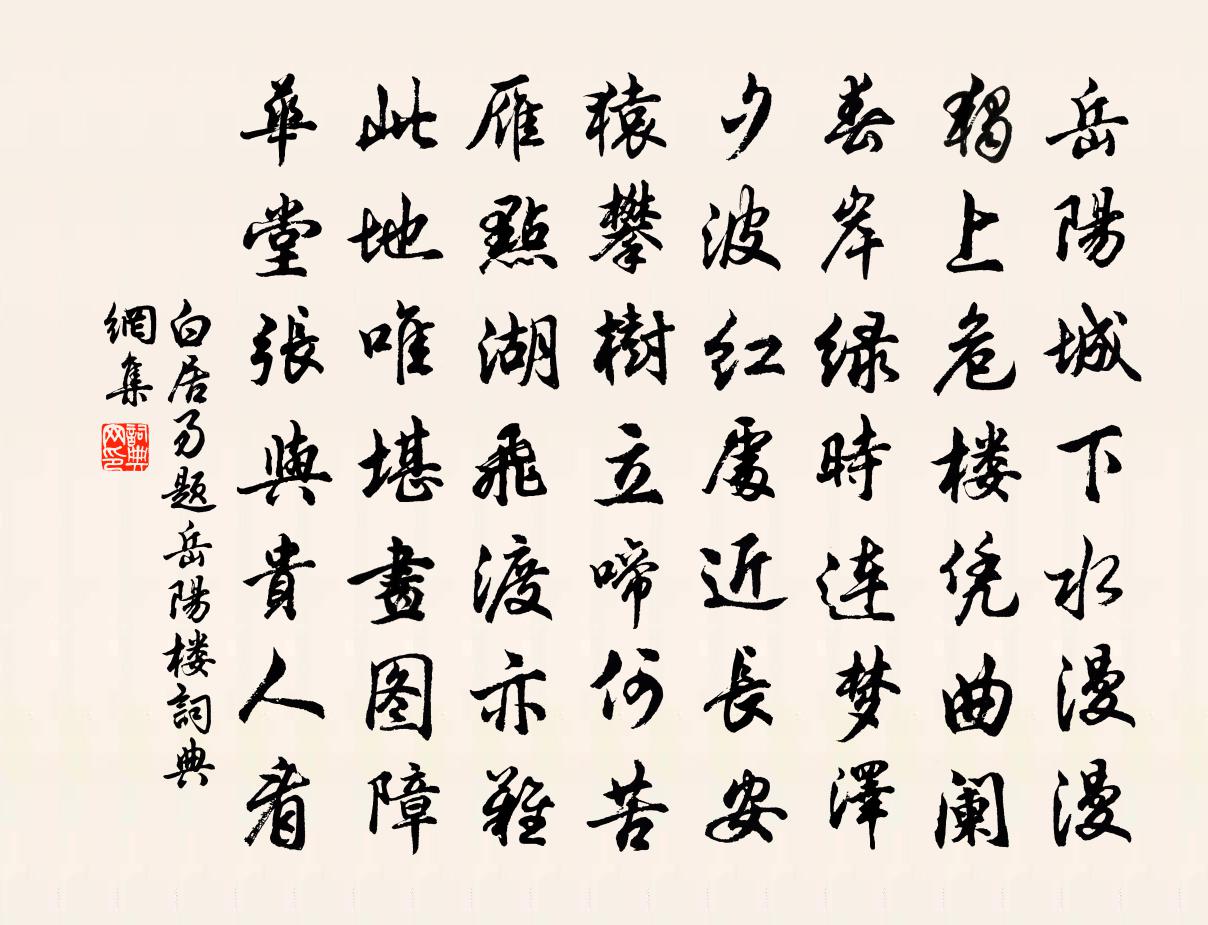 岳陽城下水漫漫
獨上危楼凭曲闌
春岸绿時連梦澤
夕波红處近長安
猿攀樹立啼何苦
雁點湖飛渡亦難
此地唯堪畫图障
華堂張與貴人看
白居易题岳陽楼詞典
網集
詞典
网印